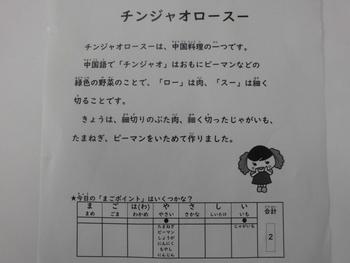 チンジャオロースー
チンジャオロースーは、中国料理の一つです。
中国語で「チンジャオ」はおもにピーマンなどの
緑色の野菜のことで、「ロー」は肉、「スー」は細く
切ることです。
きょうは、細切りのぶた肉、細く切ったじゃがいも、
たまねぎ、ピーマンをいためて作りました。
★今日の「まごポイント」はいくつかな?
ま ご は(わ) や さ し い 合計
まめ ごま わかめ やさい さかな しいたけ いも
● ● 2
たまねぎ じゃがいも
ピーマン
しょうが
にんにく
もやし
にんじん